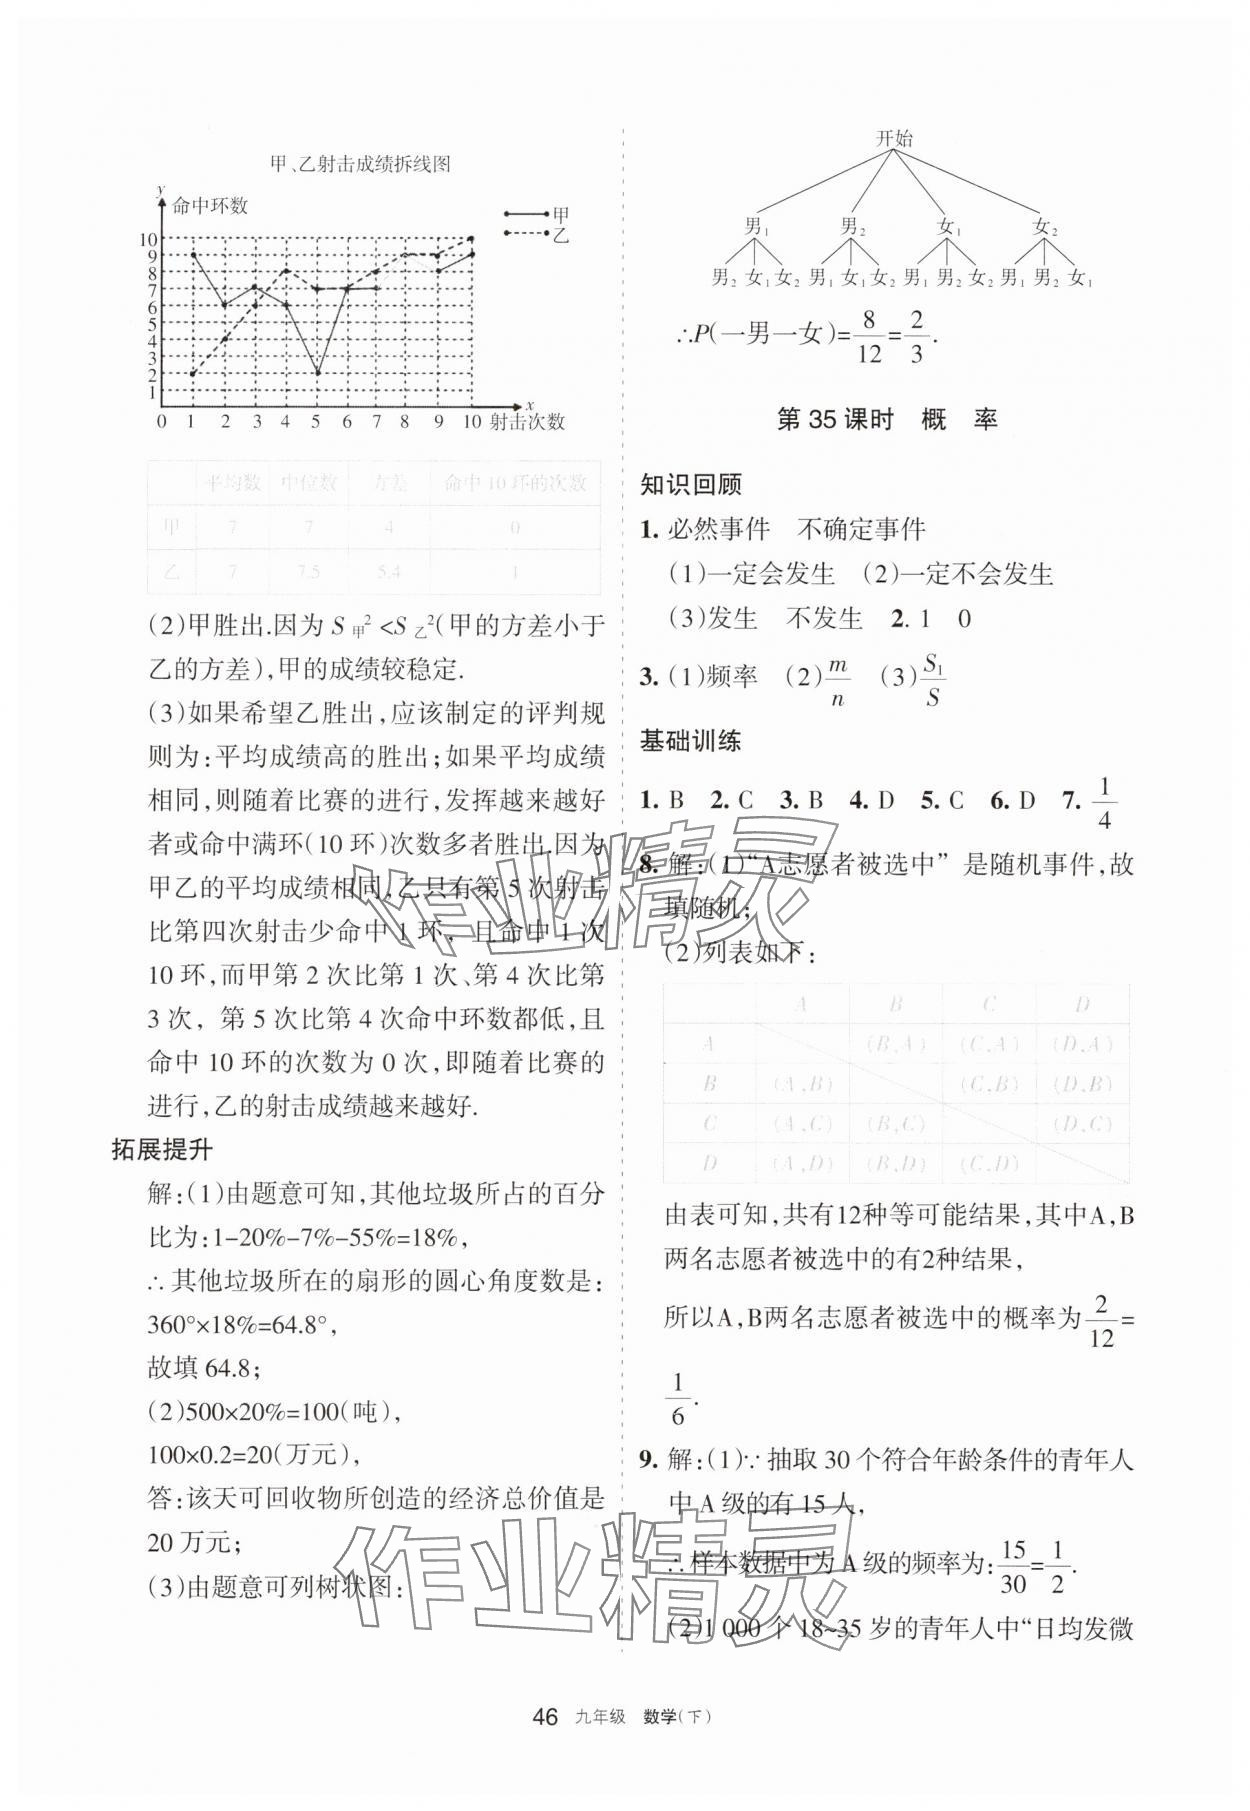 甲、乙射击成绩拆线图
y
命中环数
甲
乙
10
9
8
7
6
5
4
3
2
1
0 1 2 3 4 5 6 7 8 9 10 射击次数
x
平均数 中位数 方差 命中10环的次数
甲 7 7 4 0
乙 7 7.5 5.4 1
(2)甲胜出.因为S甲²<S乙²(甲的方差小于
乙的方差),甲的成绩较稳定.
(3)如果希望乙胜出,应该制定的评判规
则为:平均成绩高的胜出;如果平均成绩
相同,则随着比赛的进行,发挥越来越好
者或命中满环(10环)次数多者胜出.因为
甲乙的平均成绩相同,乙只有第5次射击
比第四次射击少命中1环, 且命中1次
10环,而甲第2次比第1次、第4次比第
3次, 第5次比第4次命中环数都低,且
命中10环的次数为0次,即随着比赛的
进行,乙的射击成绩越来越好.
拓展提升
解:(1)由题意可知,其他垃圾所占的百分
比为:1-20%-7%-55%=18%,
∴其他垃圾所在的扇形的圆心角度数是:
360°×18%=64.8°,
故填64.8;
(2)500×20%=100(吨),
100×0.2=20(万元),
答:该天可回收物所创造的经济总价值是
20万元;
(3)由题意可列树状图:
开始
男₁ 男₂ 女₁ 女₂
男₂ 女₁ 女₂ 男₁ 女₁ 女₂ 男₁ 男₂ 女₂ 男₁ 男₂ 女₁
∴P(一男一女)=8/12=2/3.
第35课时 概 率
知识回顾
1. 必然事件 不确定事件
(1)一定会发生 (2)一定不会发生
(3)发生 不发生 2. 1 0
3. (1)频率 (2)m/n (3)S₁/S
基础训练
1. B 2. C 3. B 4. D 5. C 6. D 7. 1/4
8. 解:(1)“A志愿者被选中”是随机事件,故
填随机;
(2)列表如下:
A B C D
A (B,A) (C,A) (D,A)
B (A,B) (C,B) (D,B)
C (A,C) (B,C) (D,C)
D (A,D) (B,D) (C,D)
由表可知,共有12种等可能结果,其中A,B
两名志愿者被选中的有2种结果,
所以A,B两名志愿者被选中的概率为2/12=
1/6.
9. 解:(1)∵抽取30个符合年龄条件的青年人
中A级的有15人,
∴样本数据中为A级的频率为:15/30=1/2.
(2)1 000个18~35岁的青年人中“日均发微
作业精灵
作业精灵
46 九年级 数学(下)